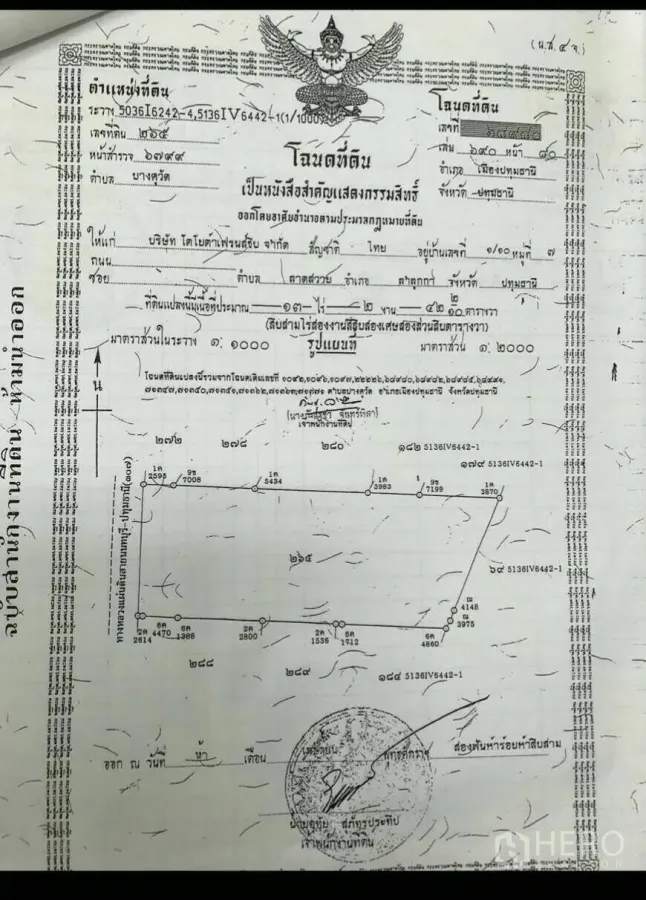 (น.ส.๔ จ.)
ตำแหน่งที่ดิน
ระวาง 5036I6242-4,5136IV6442-1(1/1000)
เลขที่ดิน ๒๖๕
หน้าสำรวจ ๖๗๙๙
ตำบล บางคูวัด
โฉนดที่ดิน
เลขที่
เล่ม ๖๙๐ หน้า ๘๐
อำเภอ เมืองปทุมธานี
จังหวัด ปทุมธานี
โฉนดที่ดิน
เป็นหนังสือสำคัญแสดงกรรมสิทธิ์
ออกโดยอาศัยอำนาจตามประมวลกฎหมายที่ดิน
ให้แก่ บริษัท โตโยต้าเฟรนสุชิบ จำกัด สัญชาติ ไทย อยู่บ้านเลขที่ ๑/๑๐ หมู่ที่ ๗
ถนน
ซอย ตำบล ลาดสวาย อำเภอ ลำลูกกา จังหวัด ปทุมธานี
ที่ดินแปลงนี้มีเนื้อที่ประมาณ ๑๓ ไร่ ๒ งาน ๔๒ ๒/๑๐ ตารางวา
(สิบสามไร่สองงานสี่สิบสองเศษสองส่วนสิบตารางวา)
มาตราส่วนในระวาง ๑: ๑๐๐๐ รูปแผนที่ มาตราส่วน ๑: ๒๐๐๐
โฉนดที่ดินแปลงนี้รวมจากโฉนดเดิมเลขที่
ตำบลบางคูวัด อำเภอเมืองปทุมธานี จังหวัดปทุมธานี
เจ้าพนักงานที่ดิน
น
๒๗๒ ๒๗๘ ๒๘๐ ๑๘๒ 5136IV6442-1
๑๗๙ 5136IV6442-1
1ค 2595 9ช 7008 1ค 5434 1ค 3983 9ช 7199 1ค 3870
๒๖๕
๖๙ 5136IV6442-1
4148
3975
2ค 2614 6ค 4470 6ค 1366 2ค 2800 2ค 1536 6ค 1912 6ค 4860
๒๘๘ ๒๘๙ ๑๘๔ 5136IV6442-1
ออก ณ วันที่ ห้า เดือน เมษายน พุทธศักราช สองพันห้าร้อยห้าสิบสาม
เจ้าพนักงานที่ดิน
ฉบับสำนักงานที่ดิน ห้ามนำออก
HERO